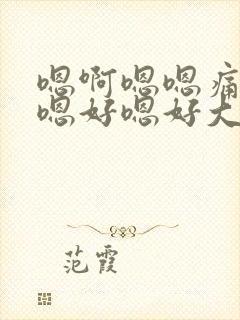 嗯啊嗯嗯痛
嗯好嗯好大
范霞